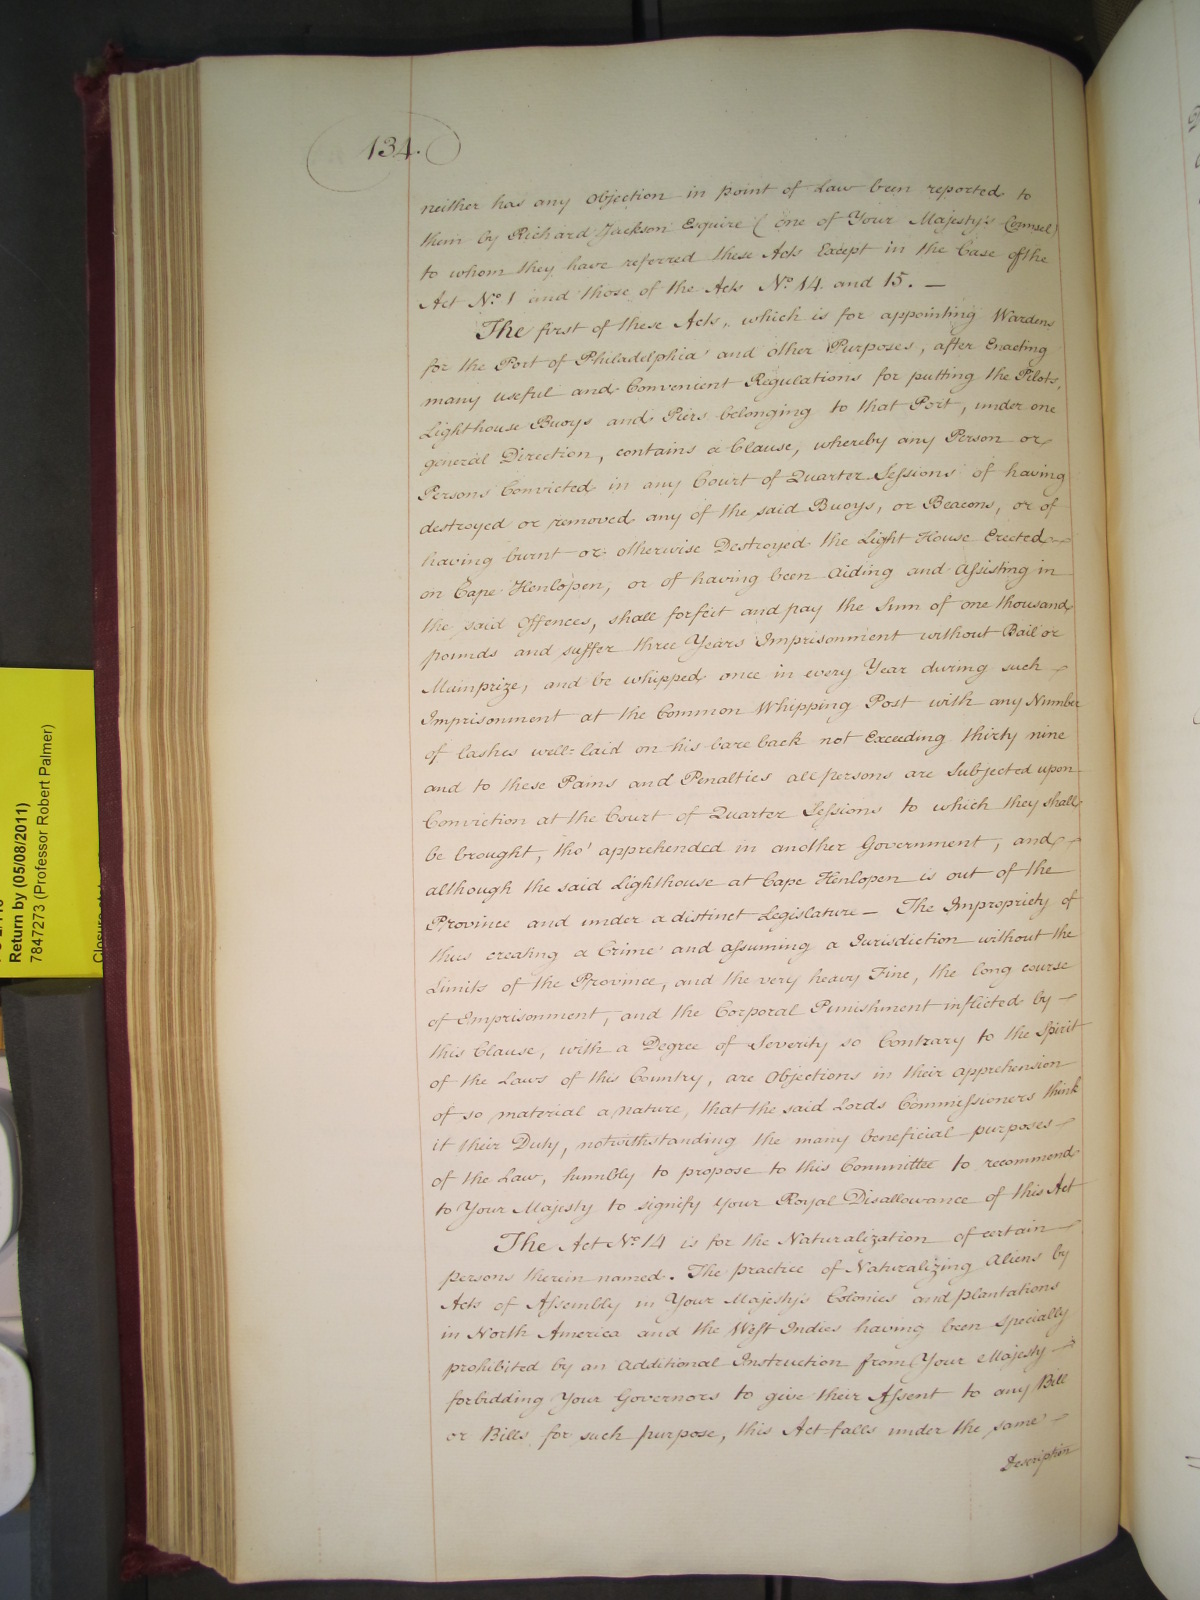 134.
neither has any Objection in point of Law been reported to
them by Richard Jackson Esquire (one of Your Majesty's Counsel)
to whom they have referred these Acts Except in the Case of the
Act No. 1 and those of the Acts No. 14 and 15. —
The first of these Acts, which is for appointing Wardens
for the Port of Philadelphia and other Purposes, after Enacting
many useful and Convenient Regulations for putting the Pilots,
Lighthouse Buoys and Piers belonging to that Port, under one
general Direction, contains a Clause, whereby any Person or
Persons Convicted in any Court of Quarter Sessions of having
destroyed or removed any of the said Buoys, or Beacons, or of
having burnt or otherwise Destroyed the Light House Erected
on Cape Henlopen, or of having been Aiding and Assisting in
the said Offences, shall forfeit and pay the Sum of one thousand
pounds and suffer three Years Imprisonment without Bail or
Mainprize, and be whipped once in every Year during such
Imprisonment at the Common Whipping Post with any Number
of lashes well-laid on his bare back not Exceeding thirty nine
and to these Pains and Penalties all persons are Subjected upon
Conviction at the Court of Quarter Sessions to which they shall
be brought, tho' apprehended in another Government, and
although the said Lighthouse at Cape Henlopen is out of the
Province and under a distinct Legislature — The Impropriety of
thus creating a Crime and assuming a Jurisdiction without the
Limits of the Province, and the very heavy Fine, the long course
of Imprisonment, and the Corporal Punishment inflicted by
this Clause, with a Degree of Severity so Contrary to the Spirit
of the Laws of this Country, are Objections in their apprehension
of so material a nature, that the said Lords Commissioners think
it their Duty, notwithstanding the many beneficial purposes
of the Law, humbly to propose to this Committee to recommend
to Your Majesty to signify Your Royal Disallowance of this Act
The Act No. 14 is for the Naturalization of certain
persons therein named. The practice of Naturalizing Aliens by
Acts of Assembly in Your Majesty's Colonies and plantations
in North America and the West Indies having been specially
prohibited by an additional Instruction from Your Majesty
forbidding Your Governors to give their Assent to any Bill
or Bills for such purpose, this Act falls under the same
Description
Return by (05/08/2011)
7847273 (Professor Robert Palmer)